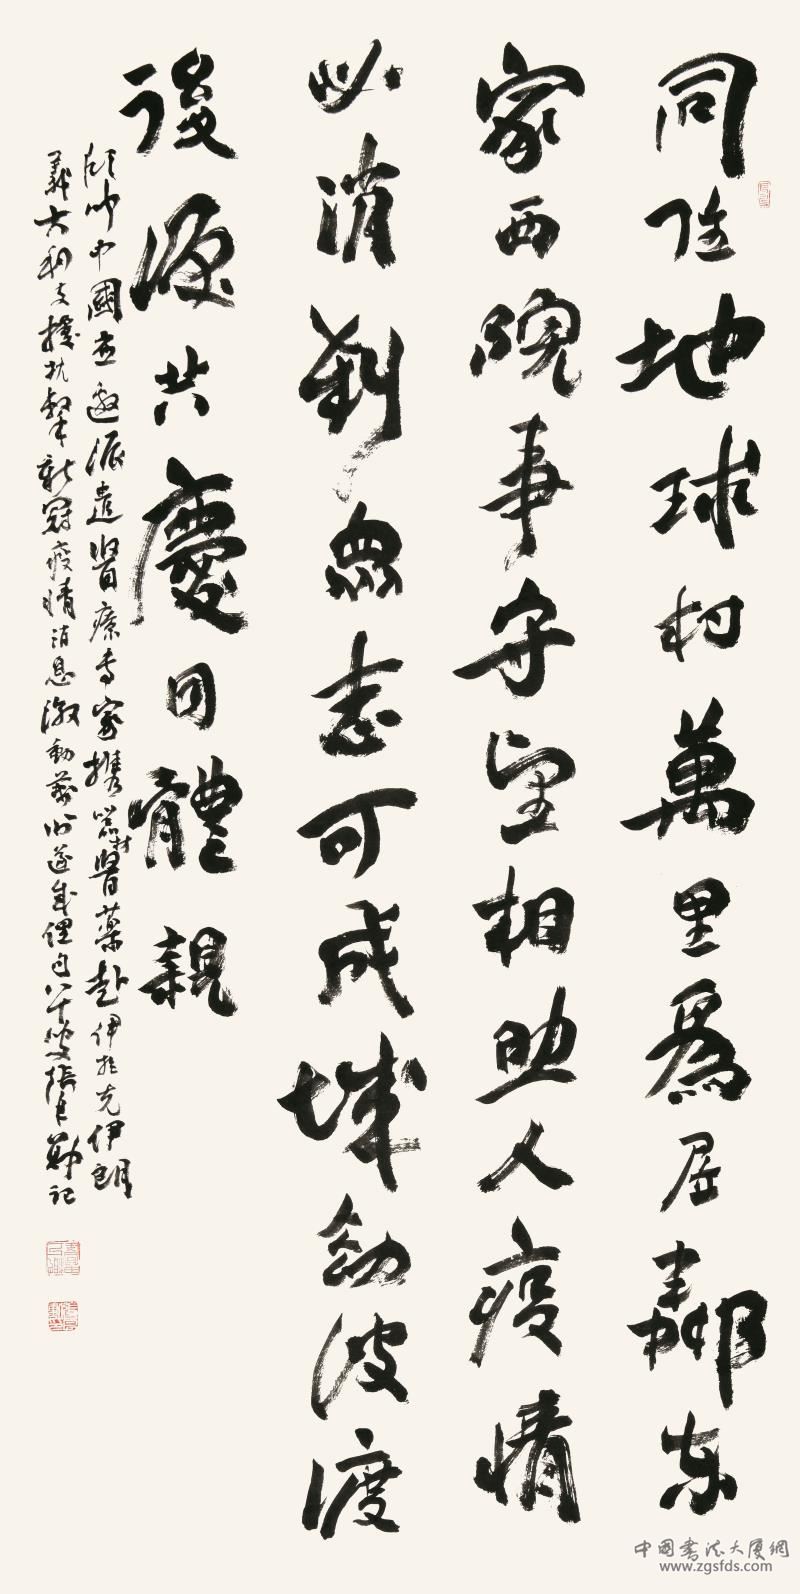 同住地球村萬里為居鄰东
家西院事守望相助人疫情
必消衆志可成城劫波渡
後共慶同體親
頃聞中國派遣醫療專家攜器材醫藥赴伊拉克伊朗
義大利支援抗擊新冠疫情消息激動萬分遂成俚句八十叟張良勳記
中国書法大厦網
www.zgsfds.com